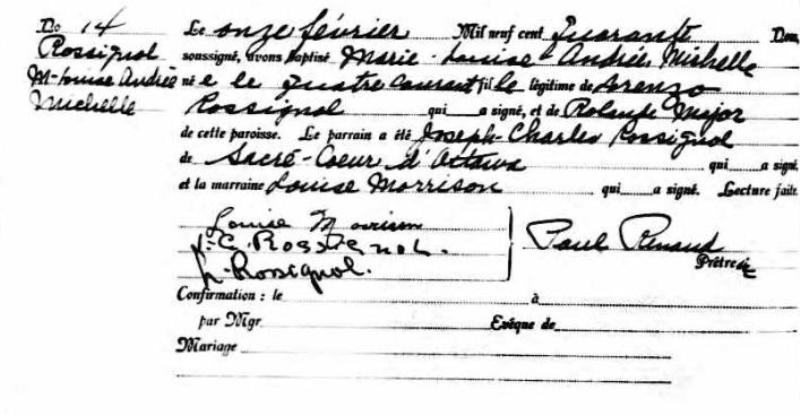 No 14
Rossignol
M-Louise Andrée
Michelle
Le onze février Mil neuf cent Quarante Nous,
soussigné, avons baptisé Marie-Louise Andrée Michelle
né e le quatre courant fille légitime de Lorenzo
Rossignol qui a signé, et de Rolande Major
de cette paroisse. Le parrain a été Joseph-Charles Rossignol
de Sacré-Coeur d'Ottawa qui a signé
et la marraine Louise Morrison qui a signé. Lecture faite.
Louise Morrison
J.-C. Rossignol.
L. Rossignol.
Paul Renaud
Prêtre
Confirmation : le à
par Mgr Evêque de
Mariage